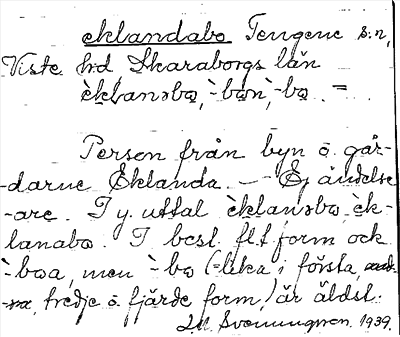 eklandabo Tengene s.n,
Viste hd, Skaraborgs län
èklanəbo, -bon, -bo. =
Person från byn o. går-
-darne Eklanda. — Ej ändelse
-are. I y. uttal èklanəbo, èk-
lanabo. I best. fl.f form ock
`-boa, men `-bo (= lika i första,
tredje o fjärde form,) är äldst.
Svenungsson. 1939.